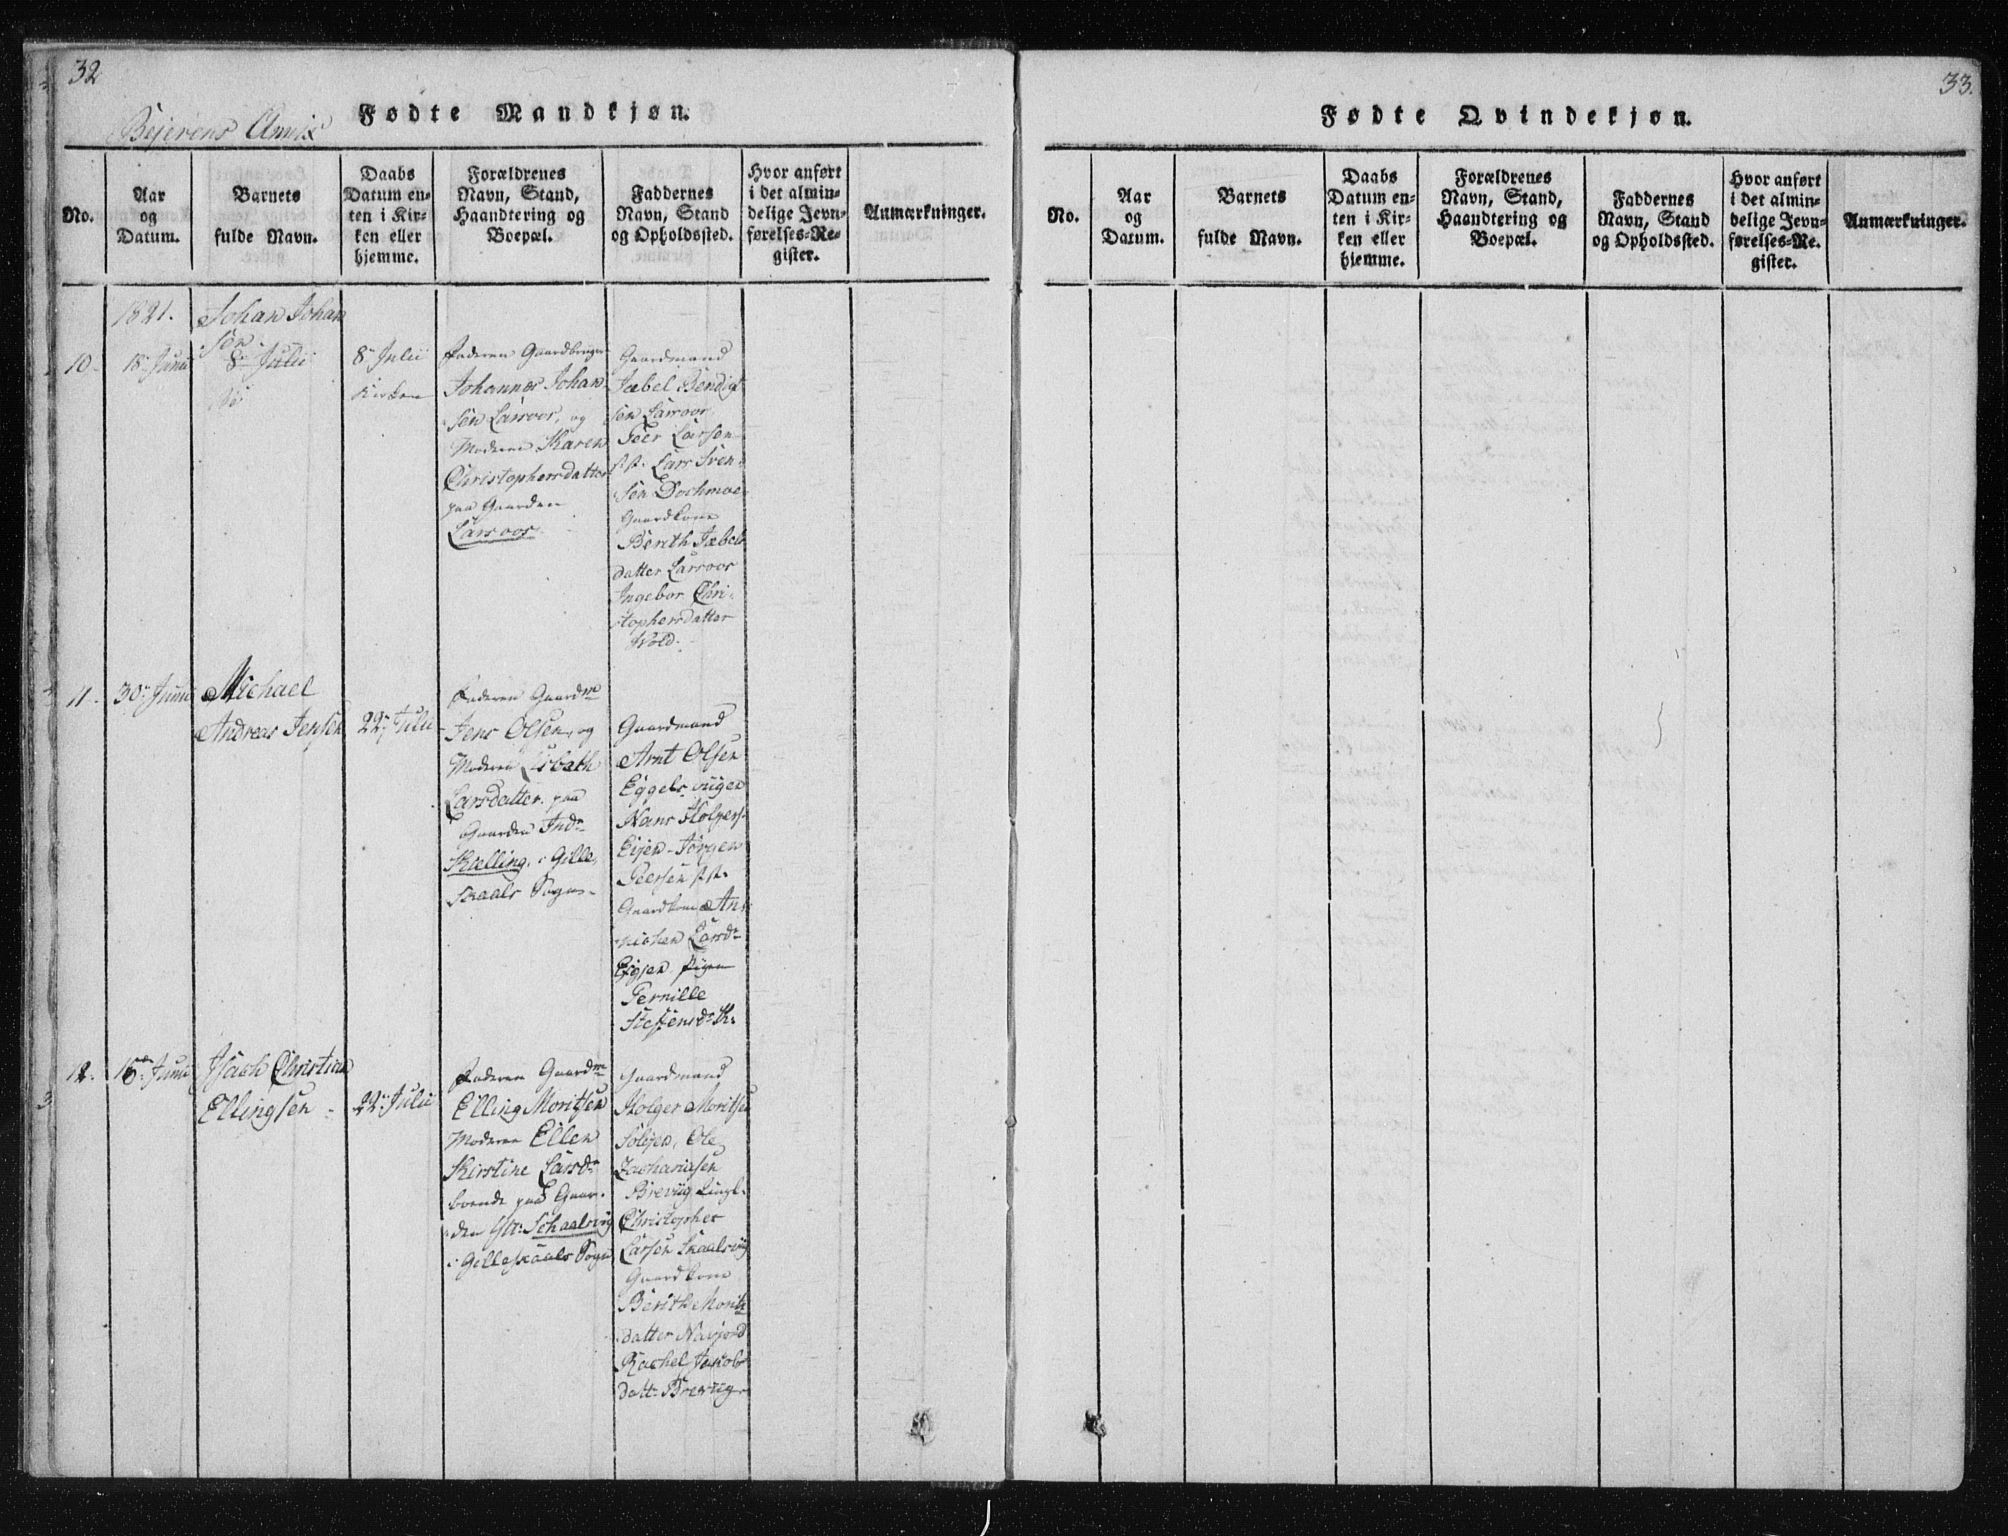 32
Bejerens Annex
Fødte Mandkjøn.
No.
Aar
og
Datum.
Barnets
fulde Navn.
Daabs
Datum en-
ten i Kir-
ken eller
hjemme.
Forældrenes
Navn, Stand,
Haandtering og
Boepæl.
Faddernes
Navn, Stand
og Opholdssted.
Hvor anført
i det almin-
delige Jevn-
førelses-Re-
gister.
Anmærkninger.
10.
1821.
18de Junii
Johan Johan
sen
8de Julii
8de Julii
Kirken
Faderen Gaardbruger
Johannes Johan
sen Larsoos, og
Moderen Karen
Christophersdatter
paa Gaarden
Larsoos.
Gaardmand
Jæbel Bendigt
sen Larsoos
Peer Larsen
st. st. Lars Sven
sen Dochmoe
Gaardkone
Berith Jæbels
datter Larsoos
Ingebor Chri-
stophersdatter
Wold.
11.
30te Junii
Michael
Andreas Jensen
22de Julii
Faderen Gaardm.
Jens Olsen, og
Moderen Lisbeth
Larsdatter paa
Gaarden Indr
Skelling i Gille
skaals Sogn.
Gaardmand
Arnt Olsen
Eggelsviigen
Hans Holgers.
Eijen Jørgen
Peersen st. st.
Gaardkone An
nichen Larsdr
Eijen Pigen
Pernille
Steffensdr
12.
16de Junii
Isach Christian
Ellingsen
22de Julii
Faderen Gaardm.
Elling Moritsen
Moderen Ellen
Kirstine Larsdr
boende paa Gaar-
den Str: Schaalsvig
i Gilleskaals Sogn
Gaardmand
Holger Moritsen
Solojen, Ole
Zachariasen
Breviig Lingl.
Christopher
Larsen Skaalsvig
Gaardkone
Berith Morits
datter Navjord
Rachel Jakobs
datt. Breviig
33.
Fødte Qvindekjøn.
No.
Aar
og
Datum.
Barnets
fulde Navn.
Daabs
Datum en-
ten i Kir-
ken eller
hjemme.
Forældrenes
Navn, Stand,
Haandtering og
Boepæl.
Faddernes
Navn, Stand
og Opholdssted.
Hvor anført
i det almin-
delige Jevn-
førelses-Re-
gister.
Anmærkninger.